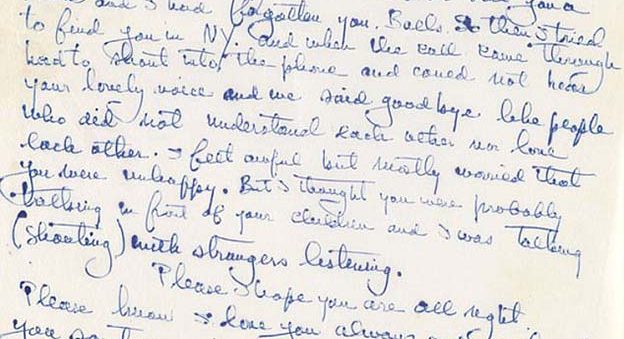 and I had forgotten you. Back. So then I tried
to find you in NY. and when the call came through
had to shout into the phone and could not hear
your lovely voice and we said goodbye like people
who did not understand each other nor love
each other. I felt awful but mostly worried that
you were unhappy. But I thought you were probably
talking in front of your children and I was talking
(shouting) with strangers listening.
Please I hope you are all right.
Please know I love you always
you